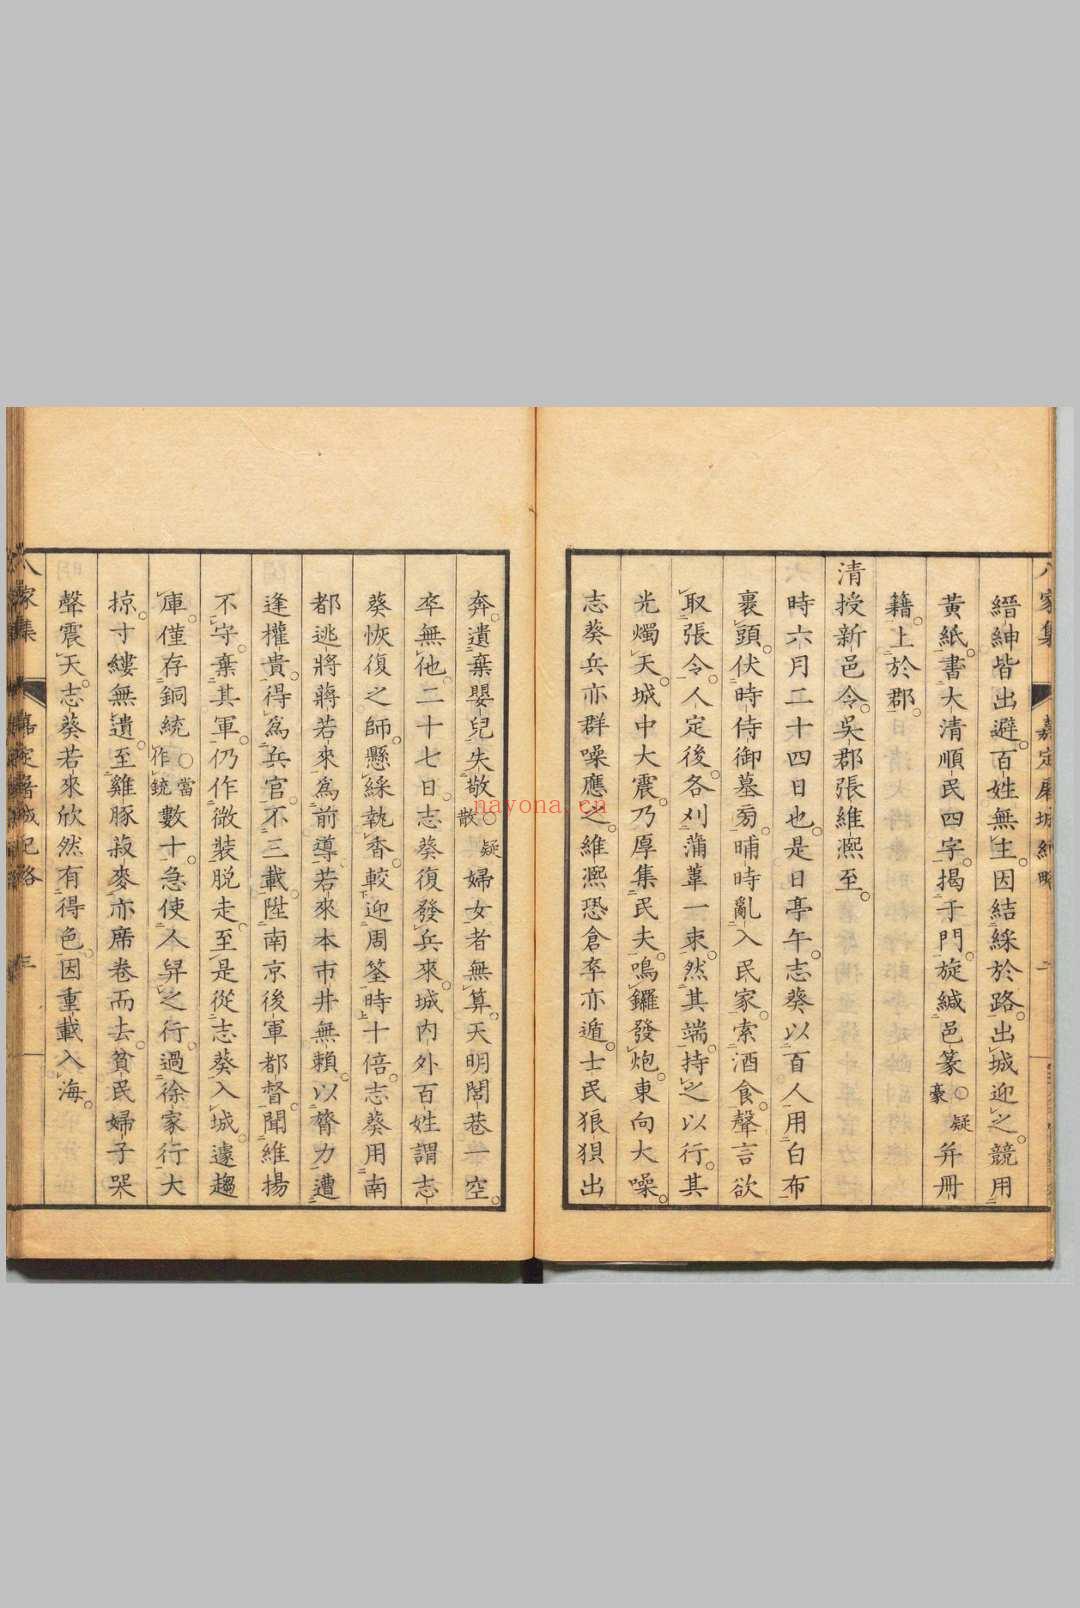 縉紳皆出避。百姓無主。因結綵於路。出城迎之。競用
黃紙。書大清順民四字。揭于門。旋緘邑篆○疑豪并冊
籍。上於郡。
清授新邑令。吳郡張維熙至。
時六月二十四日也。是日亭午。志葵以百人用白布
裹頭。伏時侍御墓旁。晡時亂入民家。索酒食。聲言欲
取張令。人定後。各刈蒲葦一束。然其端。持之以行。其
光燭天。城中大震。乃厚集民夫。鳴鑼發炮。東向大噪。
志葵兵亦群噪應之。維熙恐倉卒亦遁。士民狼狽出
奔。遺棄嬰兒失敬○疑散婦女者無算。天明閭巷一空。
卒無他。二十七日。志葵復發兵來。城內外百姓謂志
葵恢復之師。懸綵執香。較迎周荃時十倍。志葵用南
都逃將蔣若來為前導。若來本市井無賴。以膂力遭
逢權貴。得為兵官。不三載。陞南京後軍都督。聞維揚
不守。棄其軍。仍作微裝脫走。至是從志葵入城。遽趨
庫。僅存銅統○當作銃數十。急使人舁之行。過徐家行大
掠。寸縷無遺。至雞豚菽麥。亦席卷而去。貧民婦子哭
聲震天。志葵若來欣然有得色。因重載入海。
八家集
嘉定屠城紀略
二
八家集
嘉定屠城紀略
三
nayona.cn